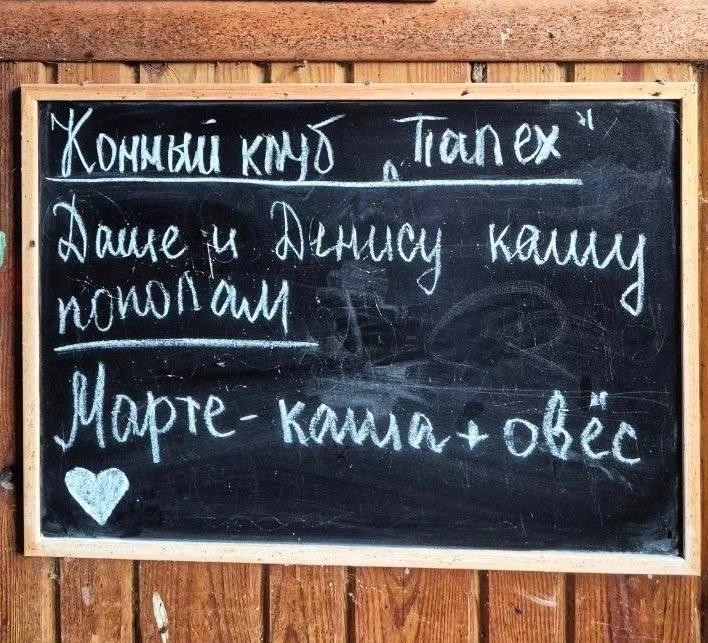 Конный клуб „Папех"
Даше и Денису кашу
пополам
Марте - каша + овёс